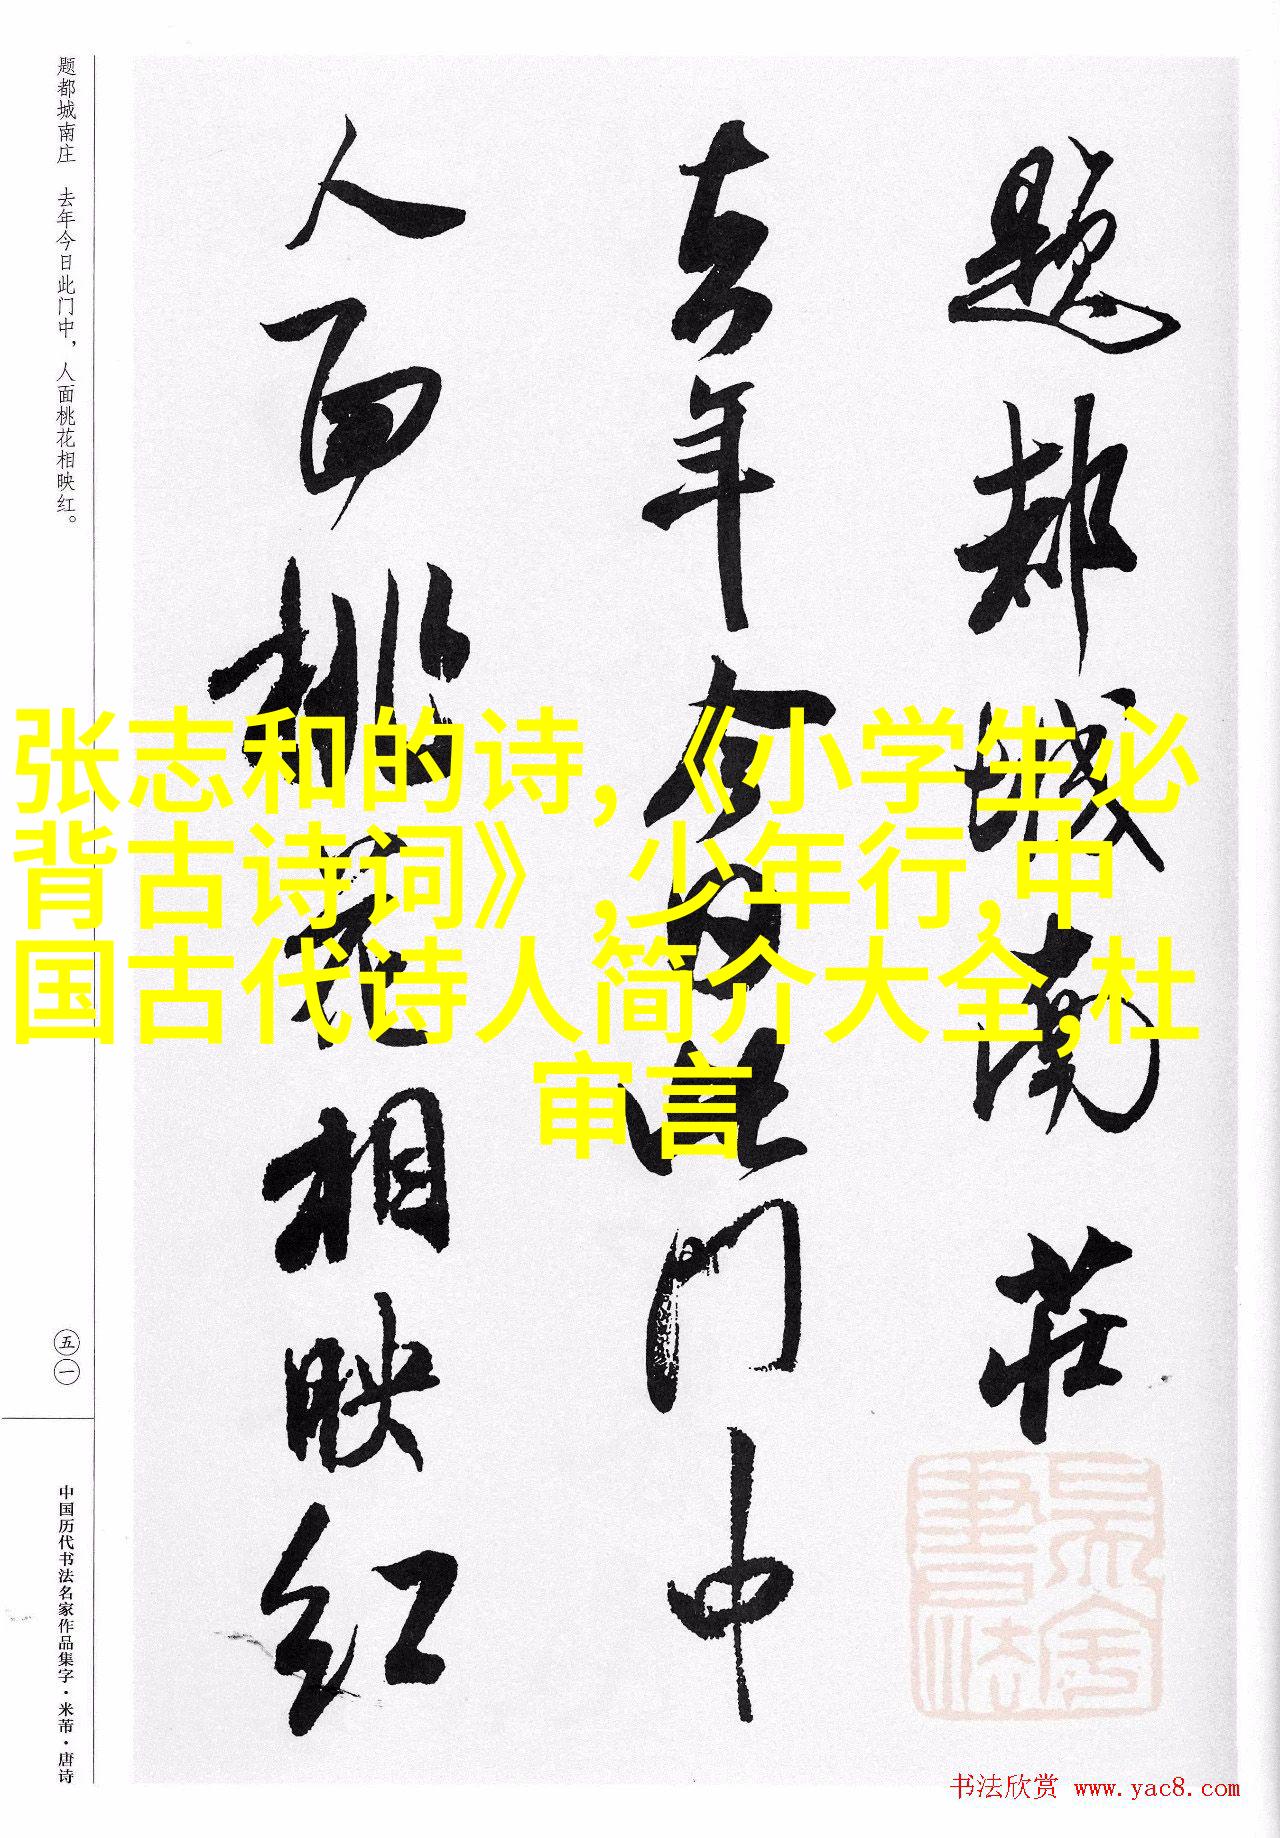 题都城南庄
去年今日此门中
人面桃花相映红
题都城南庄 去年今日此门中，人面桃花相映红。
五一
中国历代书法名家作品集字·米芾·唐诗
张志和的诗,《小学生必
背古诗词》,少年行,中
国古代诗人简介大全,杜
审言
书法欣赏 www.yac8.com